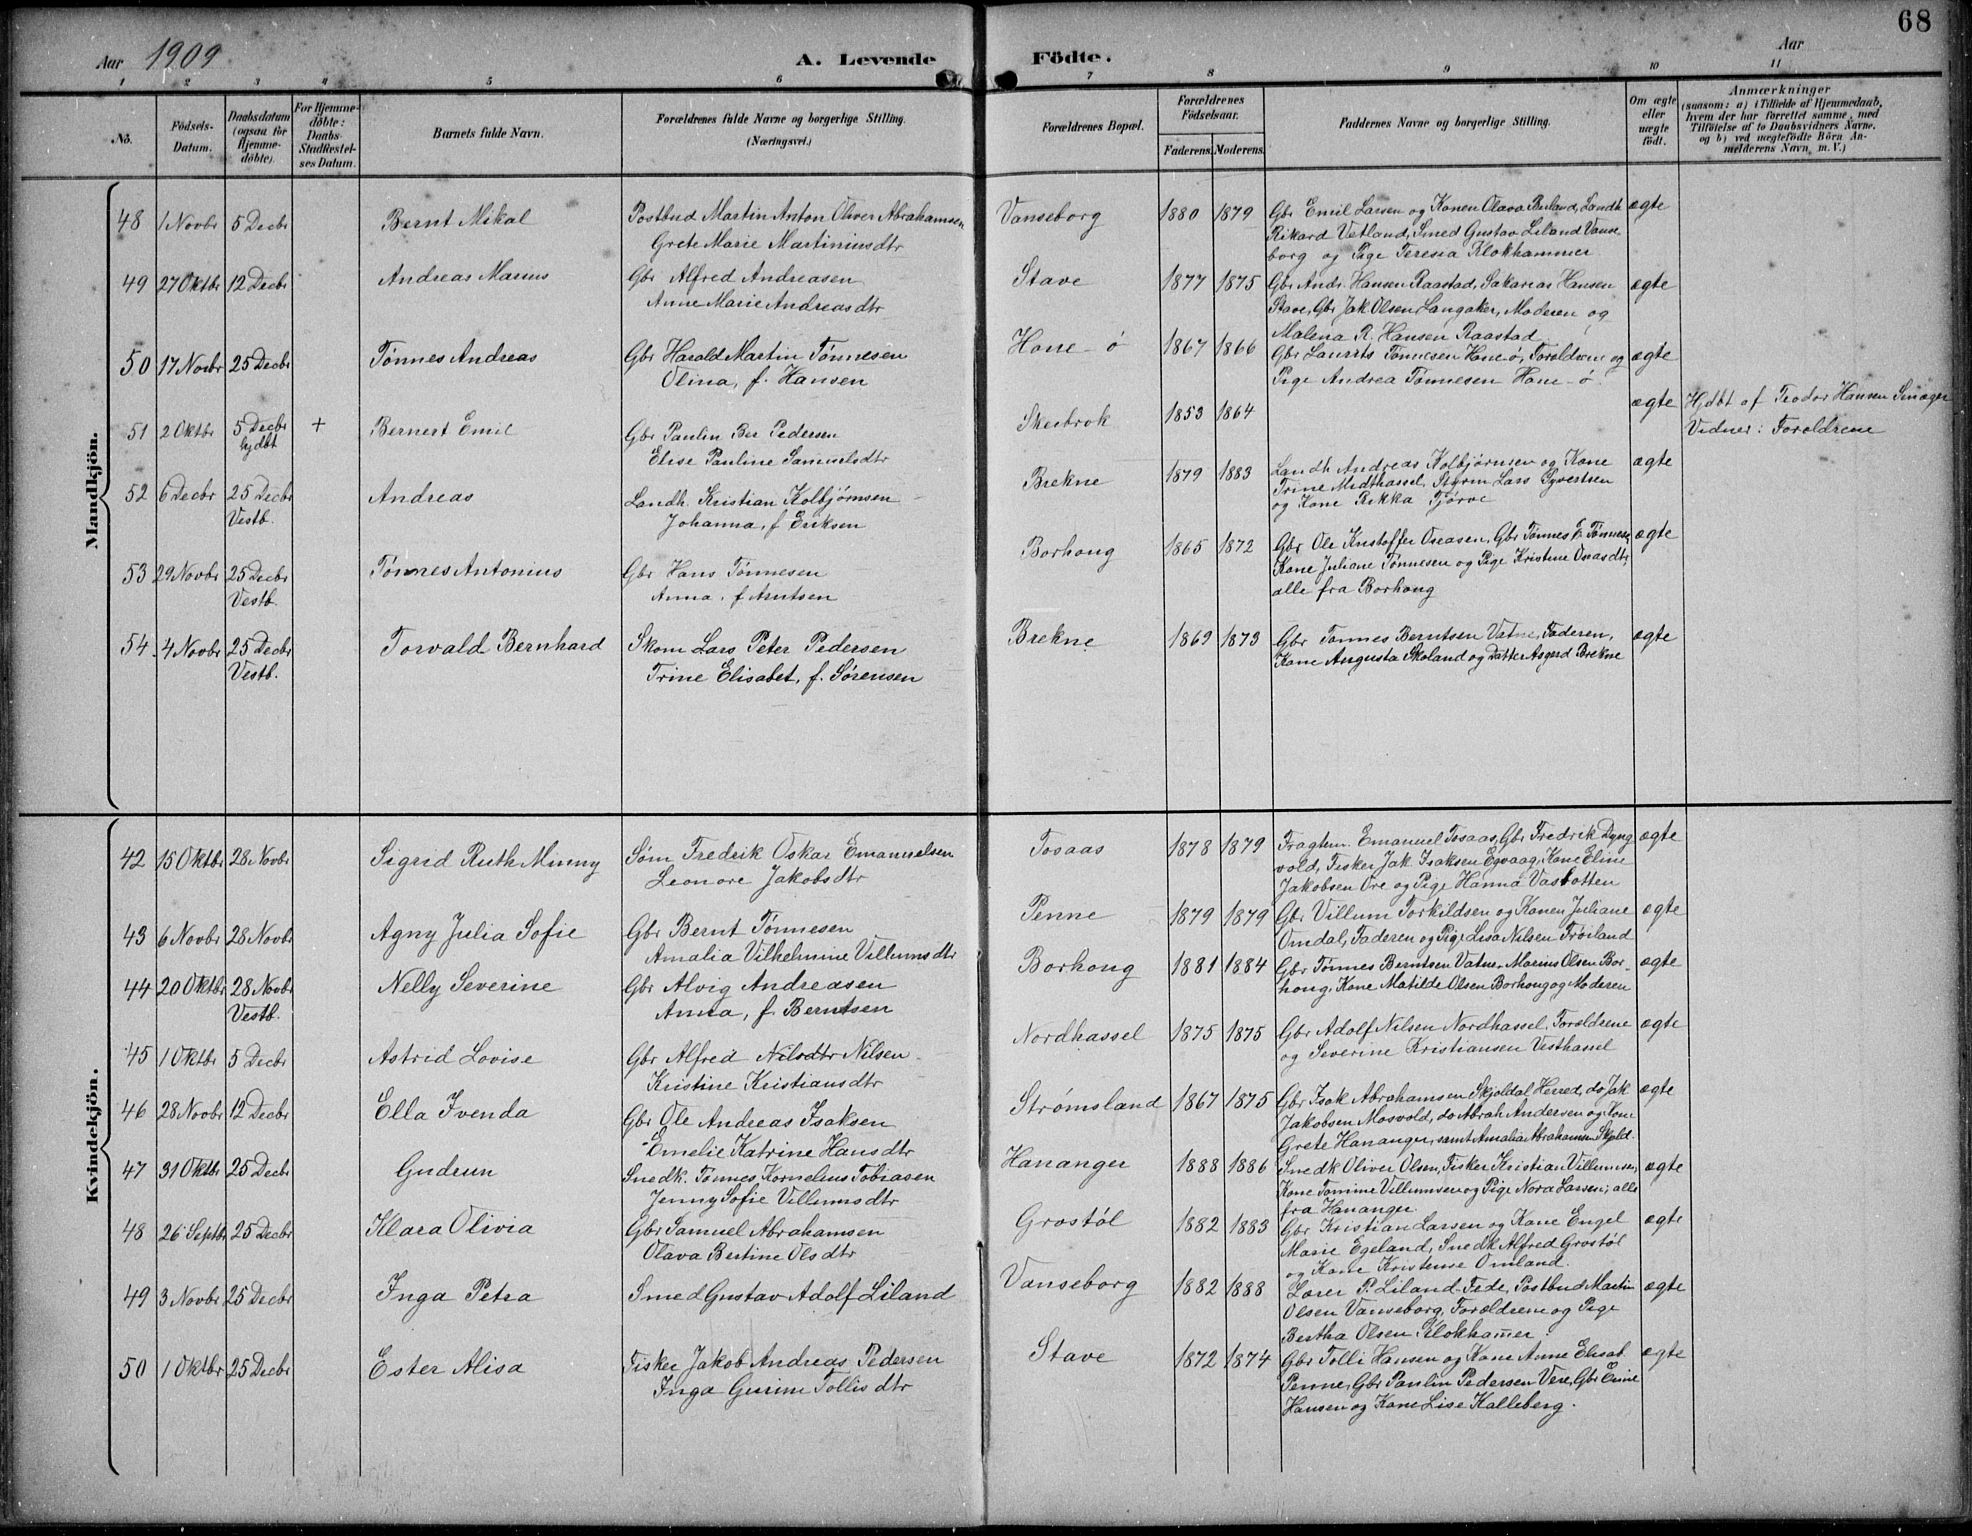 68
Aar 1909 A. Levende Födte. Aar
1 2 3 4 5 6 7 8 9 10 11
No. Födsels-Datum. Daabsdatum (ogsaa for Hjemmedöbte). For Hjemmedöbte: Daabs-Stadfæstelses Datum. Barnets fulde Navn. Forældrenes fulde Navne og borgerlige Stilling. (Næringsvei.) Forældrenes Bopæl. Forældrenes Födselsaar. Faderens. Moderens. Faddernes Navne og borgerlige Stilling. Om ægte eller uægte födt. Anmærkninger (saasom: a) i Tilfælde af Hjemmedaab, hvem der har forrettet samme, med Tilföielse af to Daabsvidners Navne, og b) ved uægtefödte Börn Anmelderens Navn m. V.)
Mandkjön.
48 1 Novbr 5 Decbr Bernt Mikal Postbud Martin Anton Oliver Abrahamsen Vanseborg 1880 1879 Gbr Emil Larsen og Konen Olava Buland, Landh ægte
Grete Marie Martiniusdtr Rikard Vetland, Smed Gustav Liland Vanse
borg og Pige Teresia Klokhammer
49 27 Oktbr 12 Decbr Andreas Marius Gbr Alfred Andreasen Stave 1877 1875 Gbr Andr. Hansen Raastad, Sakarias Hansen ægte
Anne Marie Andreasdtr Stave, Gbr Jak Olsen Langaker, Moderen og
Malena R. Hansen Raastad
50 17 Novbr 25 Decbr Tønnes Andreas Gbr Harald Martin Tønnesen Haneø 1867 1866 Gbr Laurits Tønnesen Hane-ø, Forældrene og ægte
Olina, f. Hansen Pige Andrea Tønnesen Hane-ø
51 2 Oktbr 5 Decbr hjdbt + Bernert Emil Gbr Paulin Ber Pedersen Skeibrok 1853 1864 ægte Hjdbt af Teodor Hansen
Elise Pauline Samuelsdtr Vidner: Forældrene
52 6 Decbr 25 Decbr Vestb. Andreas Landh. Kristian Kolbjørnsen Brekne 1879 1883 Landh. Andreas Kolbjørnsen og Kone ægte
Johanna, f Eriksen Trine Midthassel, Styrm Lars Syvertsen
og Kone Rikka Tjørve
53 29 Novbr 25 Decbr Vestb. Tønnes Antonius Gbr Hans Tønnesen Borhaug 1865 1872 Gbr Ole Kristoffer Oseasen, Gbr Tønnes E Tønnesen ægte
Anna, f Arntsen Kone Juliane Tønnesen og Pige Kristine Oseasdtr,
alle fra Borhaug
54 4 Novbr 25 Decbr Vestb. Torvald Bernhard Skom Lars Peter Pedersen Brekne 1869 1873 Gbr Tønnes Berntsen Vatne, Faderen, ægte
Trine Elisabet, f. Sørensen Kone Augusta Skoland og Datter Asgerd Brekne
Kvindekjön.
42 15 Oktbr 28 Novbr Sigrid Ruth Minny Søm Fredrik Oskar Emanuelsen Tosaas 1878 1879 Fragtem. Emanuel Tosaas, Gbr Fredrik Dyng ægte
Leonore Jakobsdtr vold, Fisker Jak Isaksen Egvaag, Kone Eline
Jakobsen Ore og Pige Hanna Vasbotten
43 6 Novbr 28 Novbr Agny Julia Sofie Gbr Bernt Tønnesen Penne 1879 1879 Gbr Villum Torkildsen og Konen Juliane ægte
Amalia Vilhelmine Villumsdtr Omdal, Faderen og Pige Lisa Nilsen Trøiland
44 20 Oktbr 28 Novbr Vestb. Nelly Severine Gbr Alvig Andreasen Borhaug 1881 1884 Gbr Tønnes Berntsen Vatne, Marius Olsen Bor- ægte
Anna, f. Berntsen haug, Kone Matilde Olsen Borhaug og Moderen
45 1 Oktbr 5 Decbr Astrid Lovise Gbr Alfred Nilsdtr Nilsen Nordhassel 1875 1875 Gbr Adolf Nilsen Nordhassel, Forældrene ægte
Kristine Kristiansdtr og Severine Kristiansen Vesthassel
46 28 Novbr 12 Decbr Ella Ivenda Gbr Ole Andreas Isaksen Strømsland 1867 1875 Gbr Isak Abrahamsen Skjoldal Herred, do Jak ægte
Emelie Katrine Hansdtr Jakobsen Mosvold, do Abrah Andersen og Kone
Grete Hananger, samt Amalia Abrahamsen Skjold.
47 31 Oktbr 25 Decbr Gudrun Snedk. Tønnes Kornelius Tobiasen Hananger 1888 1886 Snedk Oliver Olsen, Fisker Kristian Villumsen, ægte
Jenny Sofie Villumsdtr Kone Tomine Villumsen og Pige Nora Larsen; alle
fra Hananger
48 26 Septbr 25 Decbr Klara Olivia Gbr Samuel Abrahamsen Grostøl 1882 1883 Gbr Kristian Larsen og Kone Engel ægte
Olava Bertine Olsdtr Marie Egeland, Snedk Alfred Grostøl
og Kone Kristense Omland.
49 3 Novbr 25 Decbr Inga Petra Smed Gustav Adolf Liland Vanseborg 1882 1888 Lærer P. Liland Fede, Postbud Martin ægte
Olsen Vanseborg, Forældrene og Pige
Bertha Olsen Klokham̄er.
50 1 Oktbr 25 Decbr Ester Alisa Fisker Jakob Andreas Pedersen Stave 1872 1874 Gbr Tolli Hansen og Kone Anne Elisab ægte
Inga Gurine Tollisdtr Penne, Gbr Paulin Pedersen Vere, Gbr
Hansen og Kone Lise Kalleberg.